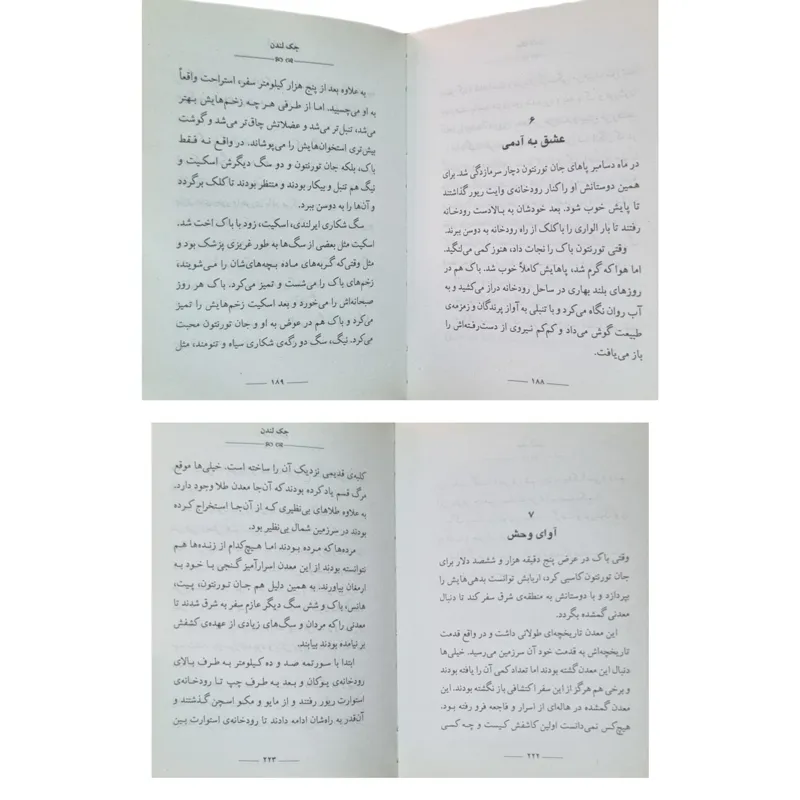 ۶
عشق به آدمی
در ماه دسامبر پاهای جان تورنتون دچار سرمازدگی شد. برای
همین دوستانش او را کنار رودخانه‌ی وایت ریور گذاشتند
تا پایش خوب شود. بعد خودشان به بالادست رودخانه
رفتند تا بار الواری را با کلک از راه رودخانه به دوسن ببرند.
وقتی تورنتون باک را نجات داد، هنوز کمی می‌لنگید.
اما هوا که گرم شد، پاهایش کاملاً خوب شد. باک هم در
روزهای بلند بهاری در ساحل رودخانه دراز می‌کشید و به
آب روان نگاه می‌کرد و با تنبلی به آواز پرندگان و زمزمه‌ی
طبیعت گوش می‌داد و کم‌کم نیروی از دست‌رفته‌اش را
باز می‌یافت.
۱۸۸
جک لندن
به علاوه بعد از پنج هزار کیلومتر سفر، استراحت واقعاً
به او می‌چسبید. اما از طرفی هر چه زخم‌هایش بهتر
می‌شد، تنبل‌تر می‌شد و عضلاتش چاق‌تر می‌شد و گوشت
بیش‌تری استخوان‌هایش را می‌پوشاند. در واقع نه فقط
باک، بلکه جان تورنتون و دو سگ دیگرش اسکیت و
نیگ هم تنبل و بیکار بودند و منتظر بودند تا کلک برگردد
و آن‌ها را به دوسن ببرد.
سگ شکاری ایرلندی، اسکیت، زود با باک اخت شد.
اسکیت مثل بعضی از سگ‌ها به طور غریزی پزشک بود و
مثل وقتی که گربه‌های ماده بچه‌های‌شان را می‌شویند،
زخم‌های باک را می‌شست و تمیز می‌کرد. باک هر روز
صبحانه‌اش را می‌خورد و بعد اسکیت زخم‌هایش را تمیز
می‌کرد و باک هم در عوض به او و جان تورنتون محبت
می‌کرد. نیگ، سگ دو رگه‌ی شکاری سیاه و تنومند، مثل
۱۸۹
۷
آوای وحش
وقتی باک در عرض پنج دقیقه هزار و ششصد دلار برای
جان تورنتون کاسبی کرد، اربابش توانست بدهی‌هایش را
بپردازد و با دوستانش به منطقه‌ی شرق سفر کند تا دنبال
معدنی گمشده بگردد.
این معدن تاریخچه‌ای طولانی داشت و در واقع قدمت
تاریخچه‌اش به قدمت خود آن سرزمین می‌رسید. خیلی‌ها
دنبال این معدن گشته بودند اما تعداد کمی آن را یافته بودند
و برخی هم هرگز از این سفر اکتشافی باز نگشته بودند. این
معدن گمشده در هاله‌ای از اسرار و فاجعه فرو رفته بود.
هیچ‌کس نمی‌دانست اولین کاشفش کیست و چه کسی
۲۲۲
جک لندن
کلبه‌ی قدیمی نزدیک آن را ساخته است. خیلی‌ها موقع
مرگ قسم یاد کرده بودند که آن‌جا معدن طلا وجود دارد.
به علاوه طلاهای بی‌نظیری که از آن‌جا استخراج کرده
بودند در سرزمین شمال بی‌نظیر بود.
مرده‌ها که مرده بودند اما هیچ‌کدام از زنده‌ها هم
نتوانسته بودند از این معدن اسرارآمیز گنجی با خود
ارمغان بیاورند. به همین دلیل هم جان تورنتون، پیت،
هانس، باک و شش سگ دیگر عازم سفر به شرق شدند تا
معدنی را که مردان و سگ‌های زیادی از عهده‌ی کشفش
بر نیامده بودند بیابند.
ابتدا با سورتمه صد و ده کیلومتر به طرف بالای
رودخانه‌ی یوکان و بعد به طرف چپ تا رودخانه‌ی
استوارت ریور رفتند و از مایو و مک‌و اسچن گذشتند و
آن‌قدر به راه‌شان ادامه دادند تا رودخانه‌ی استوارت بین
۲۲۳